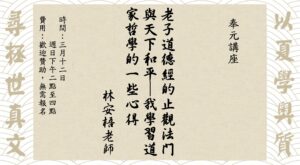 以夏學奧質
奉元講座
老子道德經的止觀法門
與天下和平—我學習道
家哲學的一些心得
林安梧老師
時間:三月十二日
週日下午二點至四點
費用:歡迎贊助,無需報名
尋拯世真文